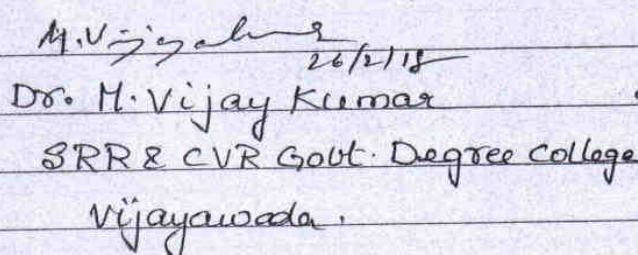 M.Vijayakumar
26/2/18
Dr. M. Vijay Kumar
SRR & CVR Govt. Degree College
Vijayawada.